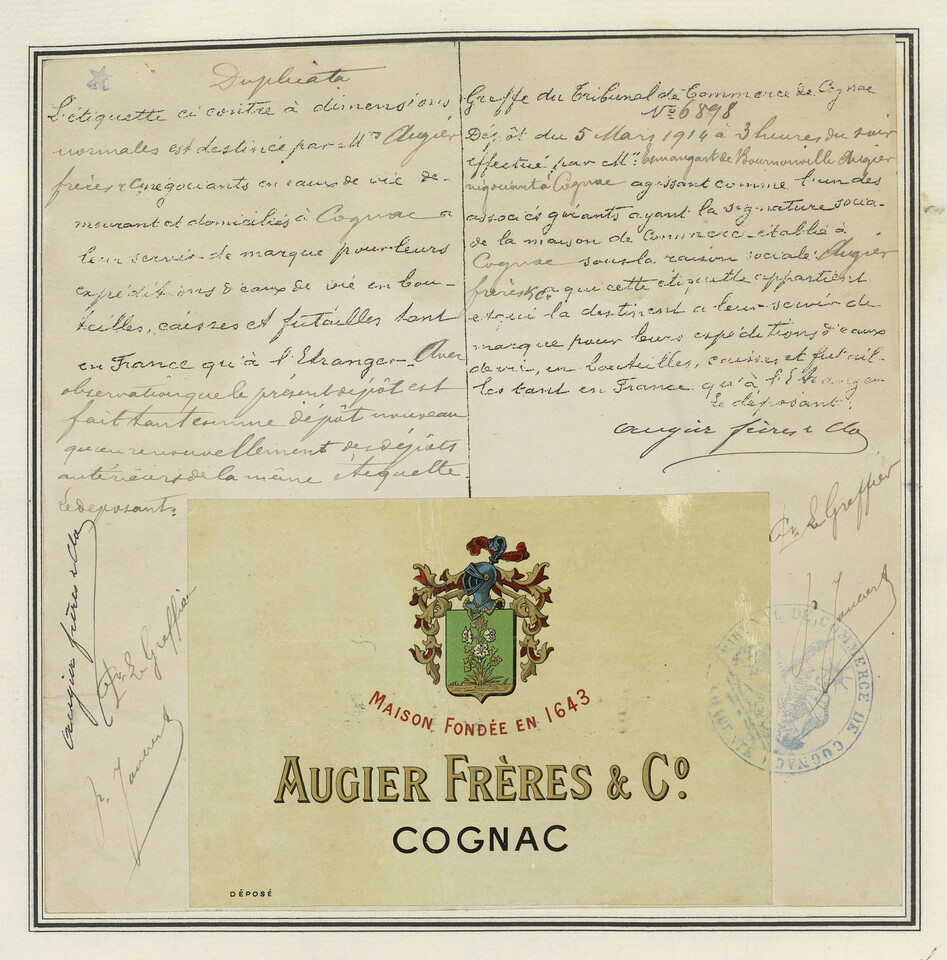 Duplicata
L'étiquette ci contre à dimensions
normales est destinée par Mrs Augier
frères & Co négociants en eaux de vie de-
meurant et domiciliés à Cognac a
leur servir de marque pour leurs
expéditions d'eaux de vie en bou-
teilles, caisses et futailles tant
en France qu'à l'Etranger - Avec
observation que le présent dépôt est
fait tant comme dépôt nouveau
qu'en renouvellement des dépôts
antérieurs de la même étiquette.
Le deposant:
augier frères & Co
Le Greffier
Greffe du Tribunal de Commerce de Cognac
No 6898
Dépôt du 5 Mars 1914 à 3 heures du soir
effectué par Mr Ermangart de Bournonville Augier
négociant à Cognac agissant comme l'un des
associés gérants ayant la signature socia-
de la maison de Commerce établie à
Cognac sous la raison sociale Augier
frères & Co a qui cette étiquette appartient
et qui la destinent a leur servir de
marque pour leurs expéditions d'eaux
de vie, en bouteilles, caisses et futail-
les tant en France qu'à l'Etranger
Le déposant:
augier frères & Co
Le Greffier
TRIBUNAL DE COMMERCE DE COGNAC
MAISON FONDÉE EN 1643
AUGIER FRÈRES & Co.
COGNAC
DÉPOSÉ